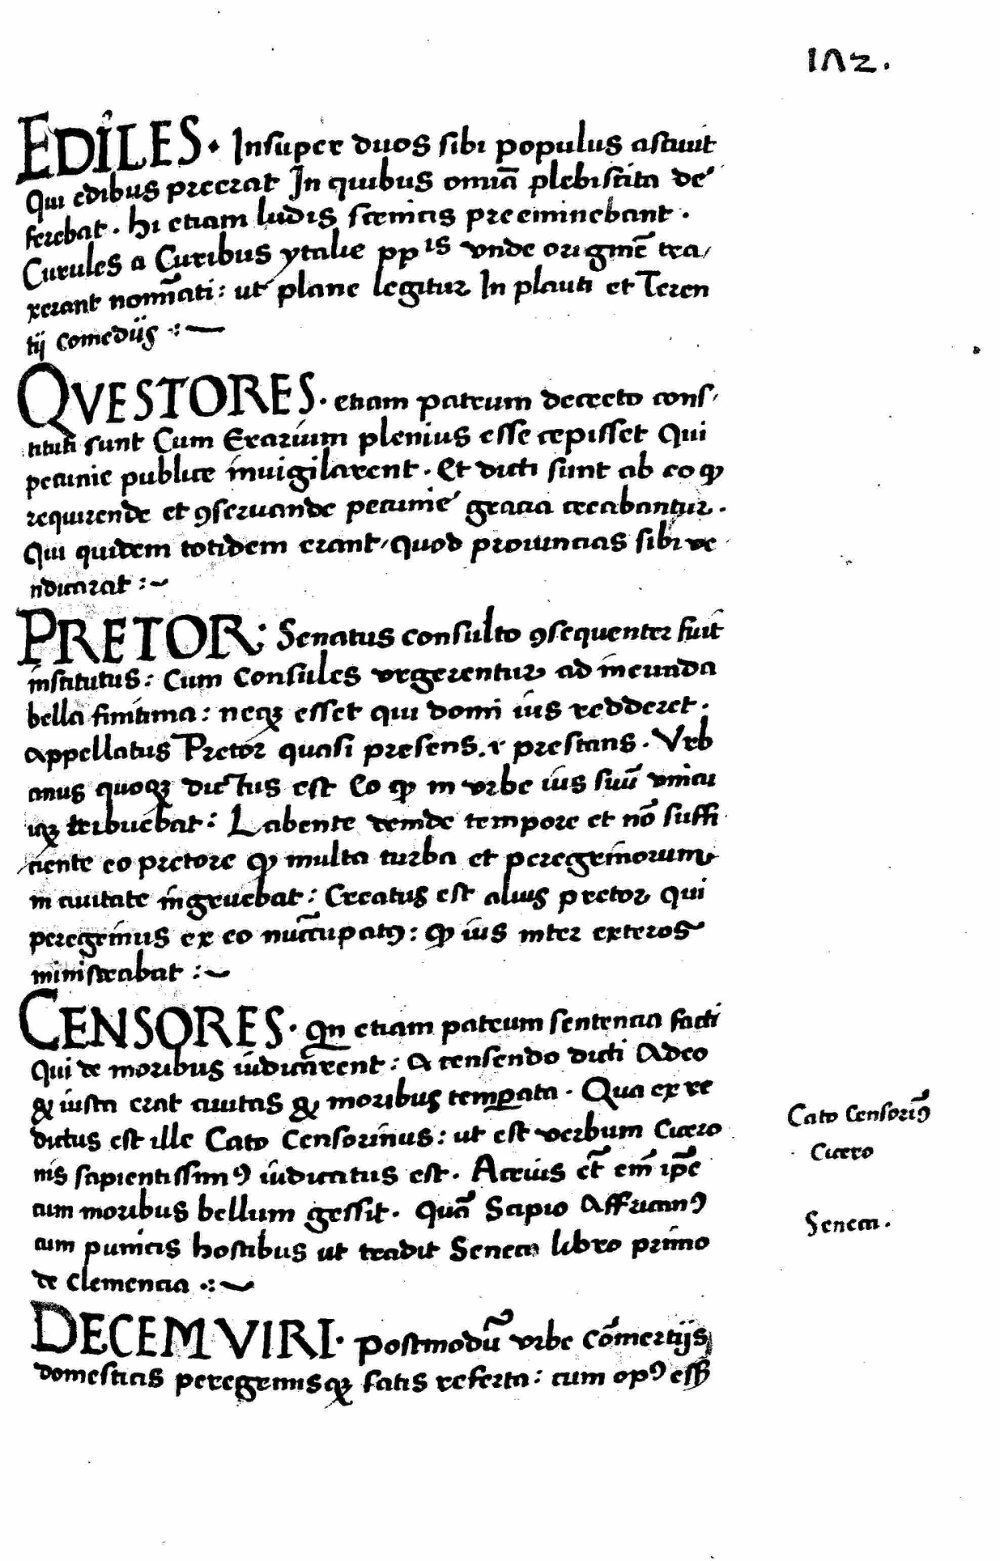 1Λ2.
EDILES. Insuper duos sibi populus asciuit
Qui edibus preerat In quibus omiā plebiscita de
ferebat. hi etiam ludis scenicis preeminebant.
Curules a Curibus ytalie ppis vnde origmē tra/
xerant nomīati: ut plane legitur In plauti et Teren
tij comedijs :~
QVESTORES. etiam patrum decreto cons/
tituti sunt Cum Erarium plenius esse cepisset Qui
pecunie publice inuigilarent. Et dicti sunt ab eo ꝙ
requirende et ꝯseruande pecunie gracia creabantur.
Qui quidem totidem erant/quod prouincias sibi ve
ndicarat :~
PRETOR: Senatus consulto ꝯsequenter fuit
institutus: Cum Consules vrgerentur ad ineunda
bella finitima: neqꝫ esset qui domi ius redderet.
Appellatus Pretor quasi presens. r prestans. Vrb
anus quoqꝫ dictus est Eo ꝙ in vrbe ius suū vnicu
iqꝫ tribuebat: Labente deinde tempore et nō suffi
ciente eo pretore ꝙ multa turba et peregrinorum
in ciuitate ingruebat: Creatus est alius pretor qui
peregrinus ex eo nuccupatꝰ: ꝙ ius inter exteros
ministrabat :~
CENSORES. Qn etiam patrum sentencia facti
Qui de moribus iudicarent: A censendo dicti Adeo
ꝙ iusta erat ciuitas ꝙ moribus temꝑata. Qua ex re
dictus est ille Cato Censorinus: ut est verbum Cicero
nis sapientissimꝰ iudicatus est. Acrius et̄ em̄ ip̄e
cum moribus bellum gessit. Quā Scipio Affricanꝰ
cum punicis hostibus ut tradit Seneca libro primo
de clemencia .:~
Cato Censoriꝰ
Cicero
Seneca.
DECEM VIRI. Postmodū vrbe comertijs
domesticis peregrinisqꝫ satis referta: cum opꝰ ess̄